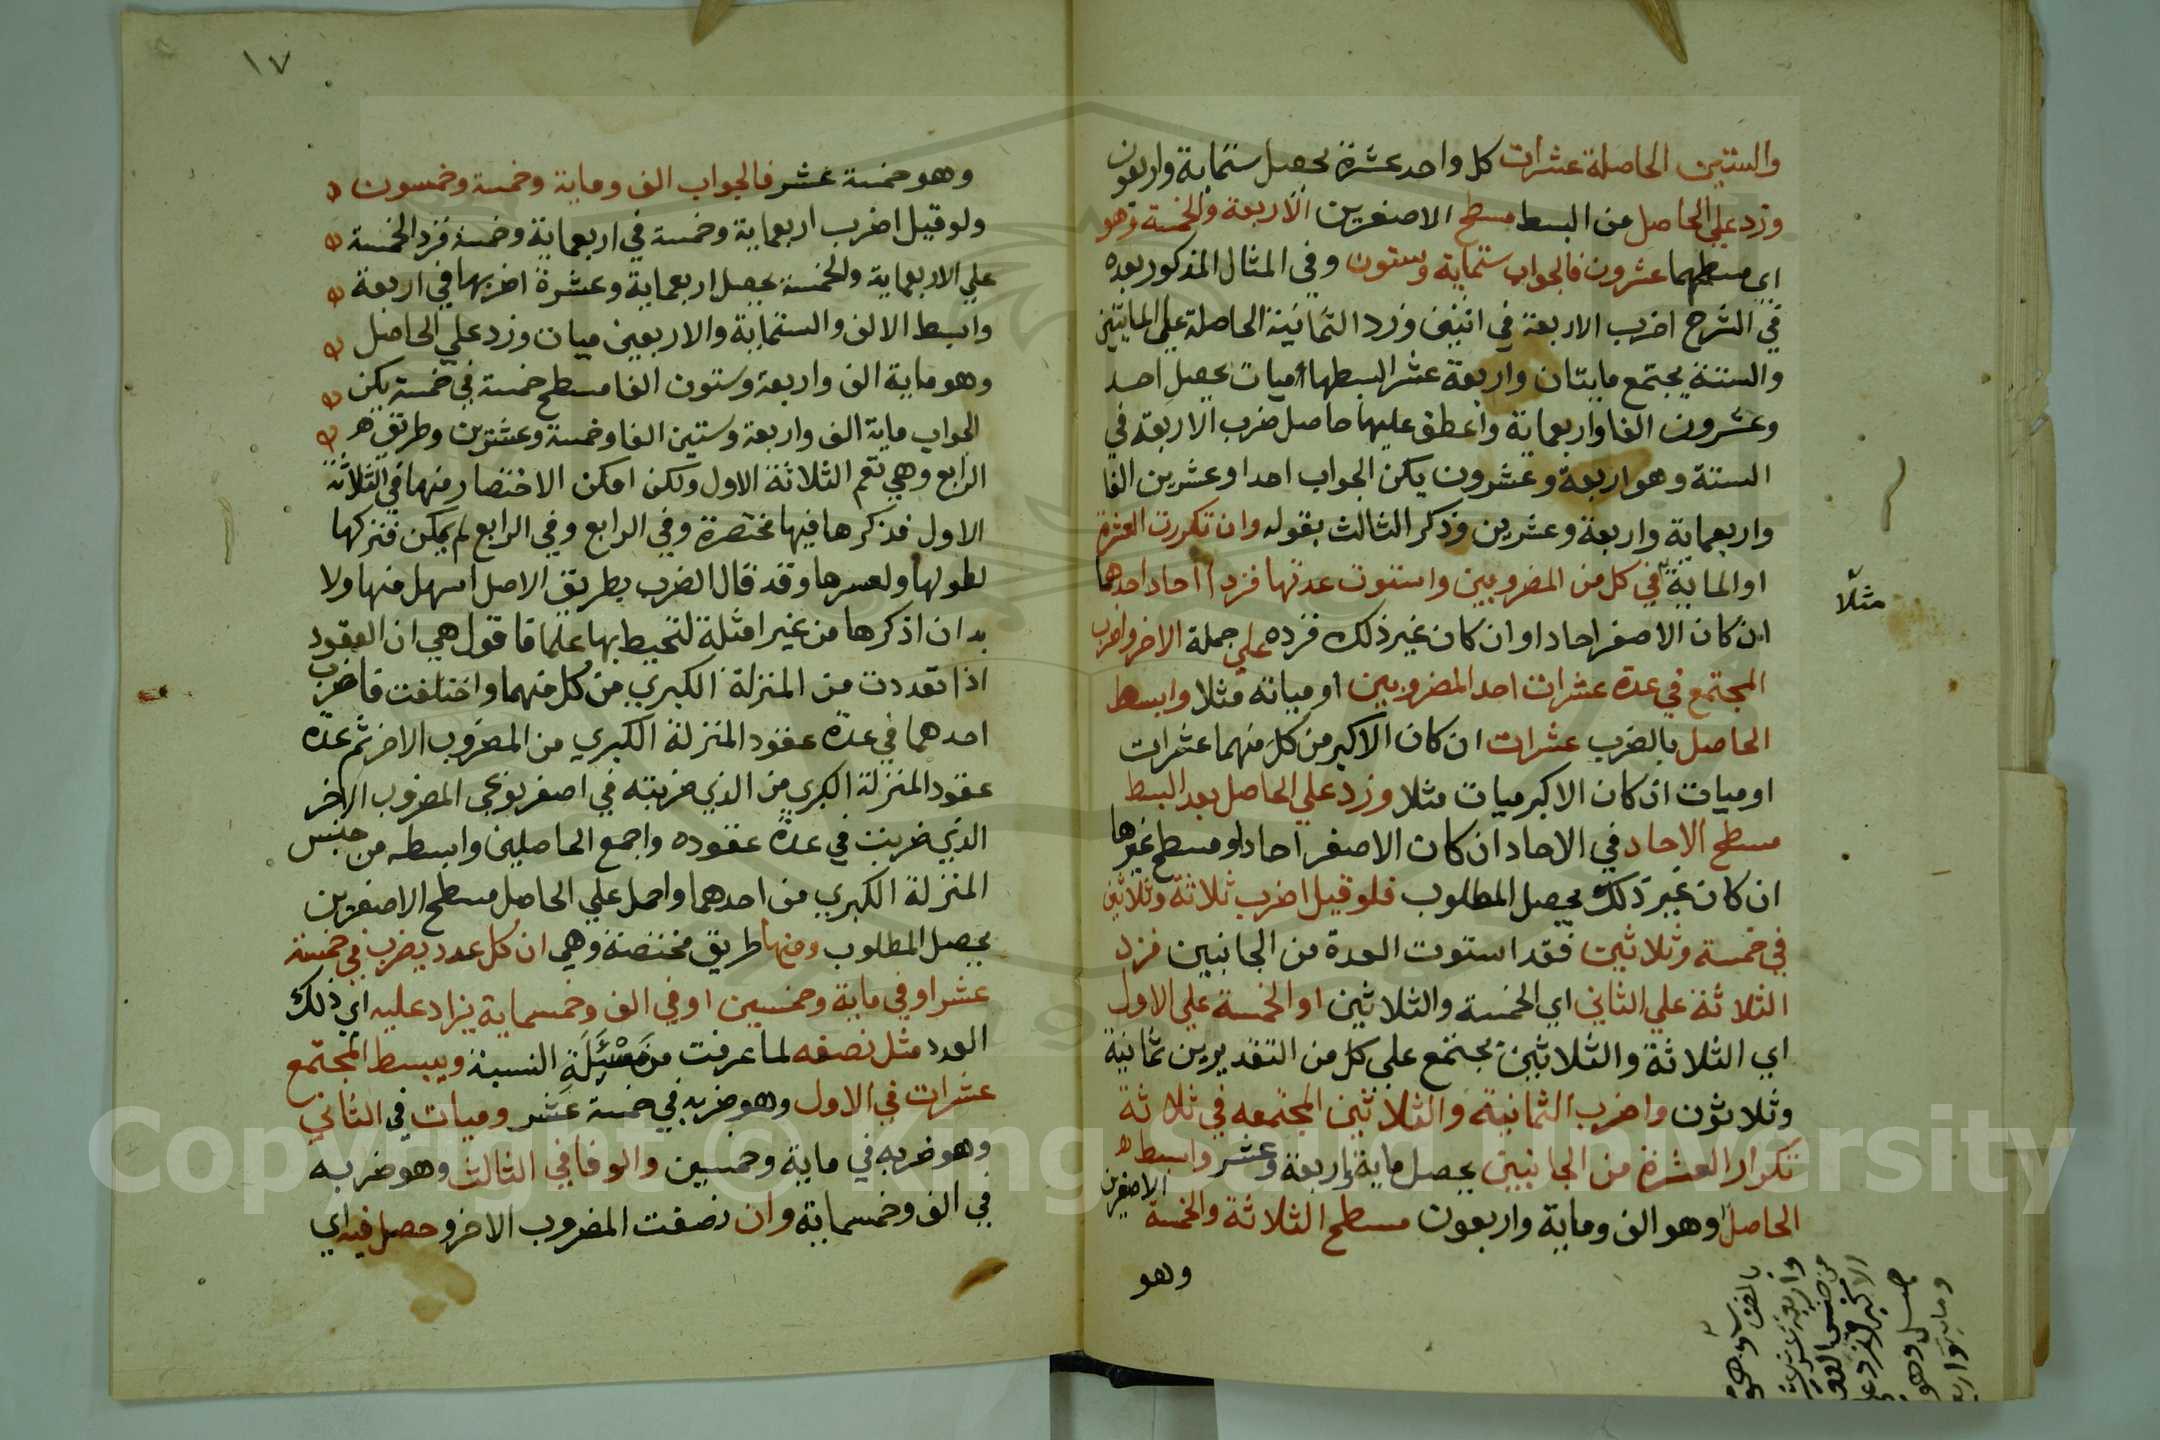 والستين الحاصلة عشرات كل واحد عشرة يحصل ستماية واربعون
وزد علي الحاصل من البسط مسطح الاصغرين الاربعة والخمسة وهو
اي مسطحهما عشرون فالجواب ستماية وستون وفي المثال المذكور بعده
في الشرح اضرب الاربعة في اثنين وزد الثمانية الحاصلة علي المايتين
والستة يجتمع مايتان واربعة عشر ابسطها ميات يحصل احد
وعشرون الفا واربعماية واعطف عليها حاصل ضرب الاربعة في
الستة وهو اربعة وعشرون يكن الجواب احدا وعشرين الفا
واربعماية واربعة وعشرين وذكر الثالث بقوله وان تكررت العشرة
او الماية في كل من المضروبين واستوت عدتها فزد احاد احدهما
ان كان الاصغر احادا وان كان غير ذلك فزده علي جملة الاخر واضرب
المجتمع في عدة عشرات احد المضروبين او مياته مثلا وابسط
الحاصل بالضرب عشرات ان كان الاكبر من كل منهما عشرات
او ميات ان كان الاكبر ميات مثلا وزد علي الحاصل بعد البسط
مسطح الاحاد في الاحاد ان كان الاصغر احادا او مسطح غيرها
ان كان غير ذلك يحصل المطلوب فلو قيل اضرب ثلاثة وثلاثين
في خمسة وثلاثين فقد استوت العدة من الجانبين فزد
الثلاثة علي الثاني اي الخمسة والثلاثين او الخمسة علي الاول
اي الثلاثة والثلاثين يجتمع علي كل من التقديرين ثمانية
وثلاثون واضرب الثمانية والثلاثين المجتمعه في ثلاثة
تكرار العشرة من الجانبين يحصل ماية واربعة وعشر وابسط
الحاصل وهو الف وماية واربعون مسطح الثلاثة والخمسة الاصغرين
وهو
مثلا
١٧
وهو خمسة عشر فالجواب الف وماية وخمسة وخمسون
ولو قيل اضرب اربعماية وخمسة في اربعماية وخمسة فزد الخمسة
علي الاربعماية والخمسة يحصل اربعماية وعشرة اضربها في اربعة
وابسط الالف والستماية والاربعين ميات وزد علي الحاصل
وهو ماية الف واربعة وستون الفا مسطح خمسة في خمسة يكن
الجواب ماية الف واربعة وستين الفا وخمسة وعشرين وطريق
الرابع وهي تعم الثلاثة الاول ولكن امكن الاختصار منها في الثلاثة
الاول فذكرها فيها مختصرة وفي الرابع وفي الرابع لم يمكن فتركها
لطولها ولعسرها وقد قال الضرب بطريق الاصل اسهل منها ولا
بد ان اذكرها من غير امثلة لتحيط بها علما فاقول هي ان العقود
اذا تعددت من المنزلة الكبري من كل منهما واختلفت فاضرب
احدهما في عدة عقود المنزلة الكبري من المضروب الاخر ثم عدة
عقود المنزلة الكبري من الذي ضربته في اصغر نوعي المضروب الاخر
الذي ضربت في عدة عقوده واجمع الحاصلين وابسطه من جنس
المنزلة الكبري من احدهما واحمل علي الحاصل مسطح الاصغرين
يحصل المطلوب ومنها طريق مختصة وهي ان كل عدد يضرب في خمسة
عشر او في ماية وخمسين او في الف وخمسماية يزاد عليه اي ذلك
العدد مثل نصفه لما عرفت من مسئلة النسبة ويبسط المجتمع
عشرات في الاول وهو ضربه في خمسة عشر وميات في الثاني
وهو ضربه في ماية وخمسين والوفا في الثالث وهو ضربه
في الف وخمسماية وان نصفت المضروب الاخر وحصل فيه اي